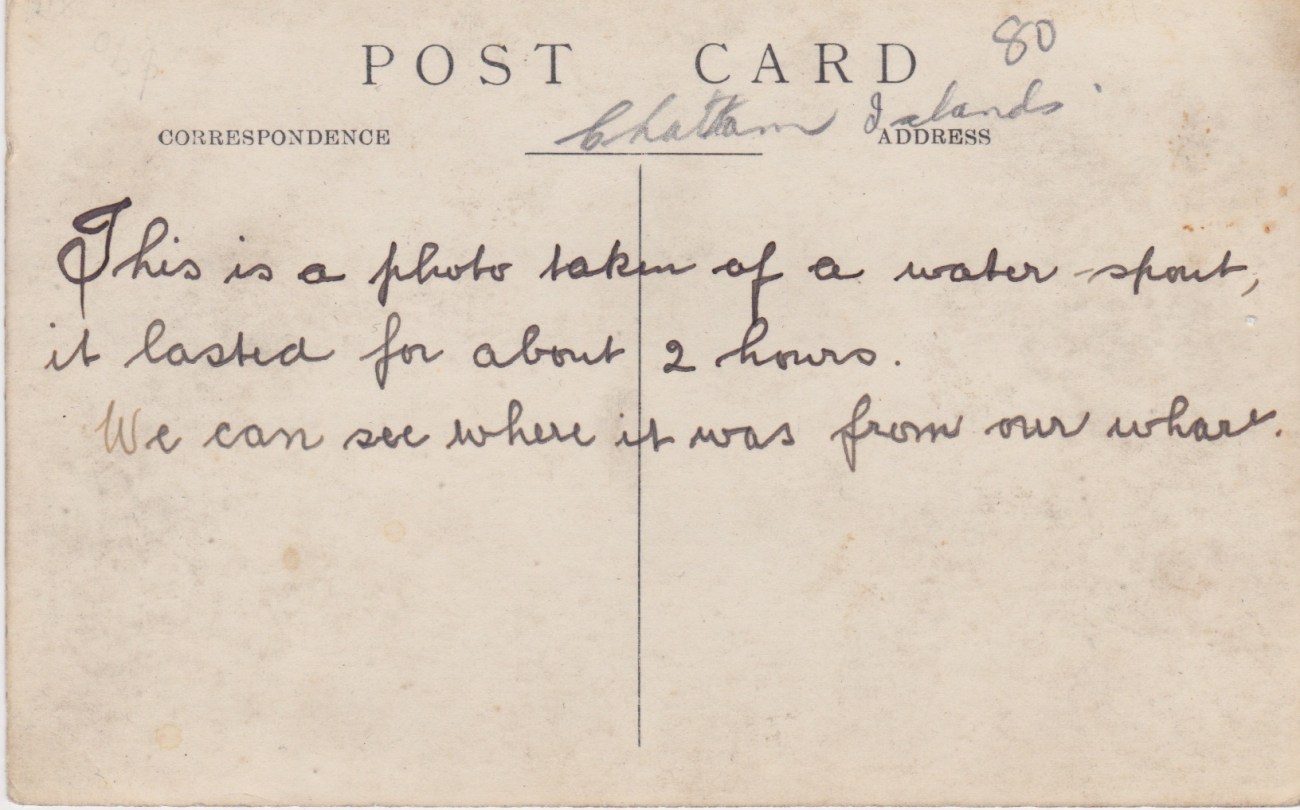 80
POST CARD
Chattam Islands.
CORRESPONDENCE ADDRESS
This is a photo taken of a water spout,
it lasted for about 2 hours.
We can see where it was from our wharf.